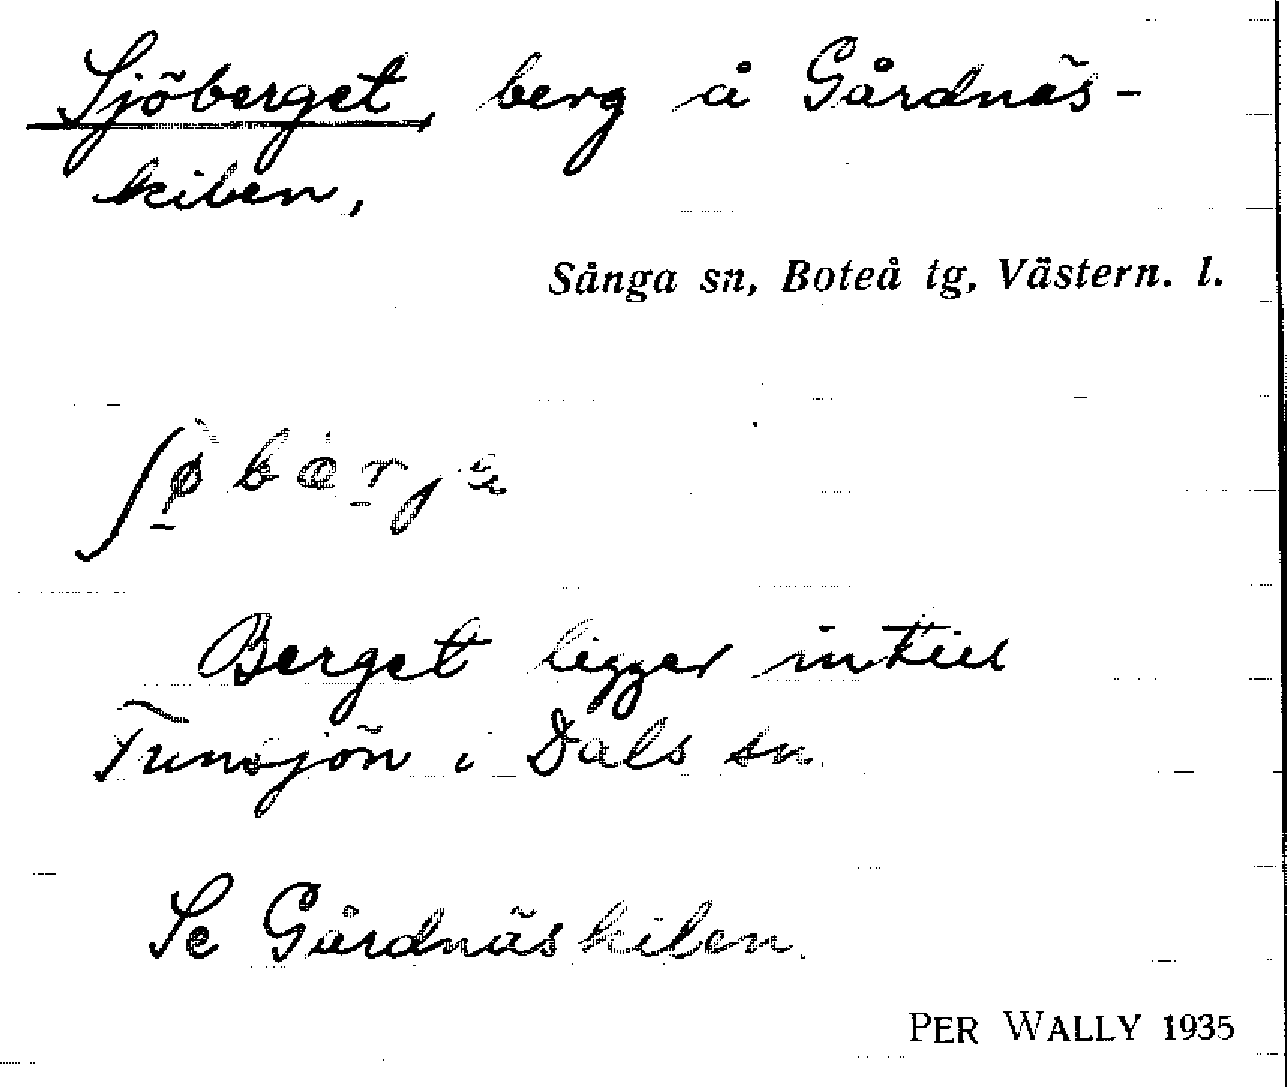 Sjöberget, berg å Gårdnäs-
kilen,
Sånga sn, Boteå tg, Västern. l.
Berget ligger intill
Tunsjön i Dals sn.
Se Gårdnäskilen.
PER WALLY 1935